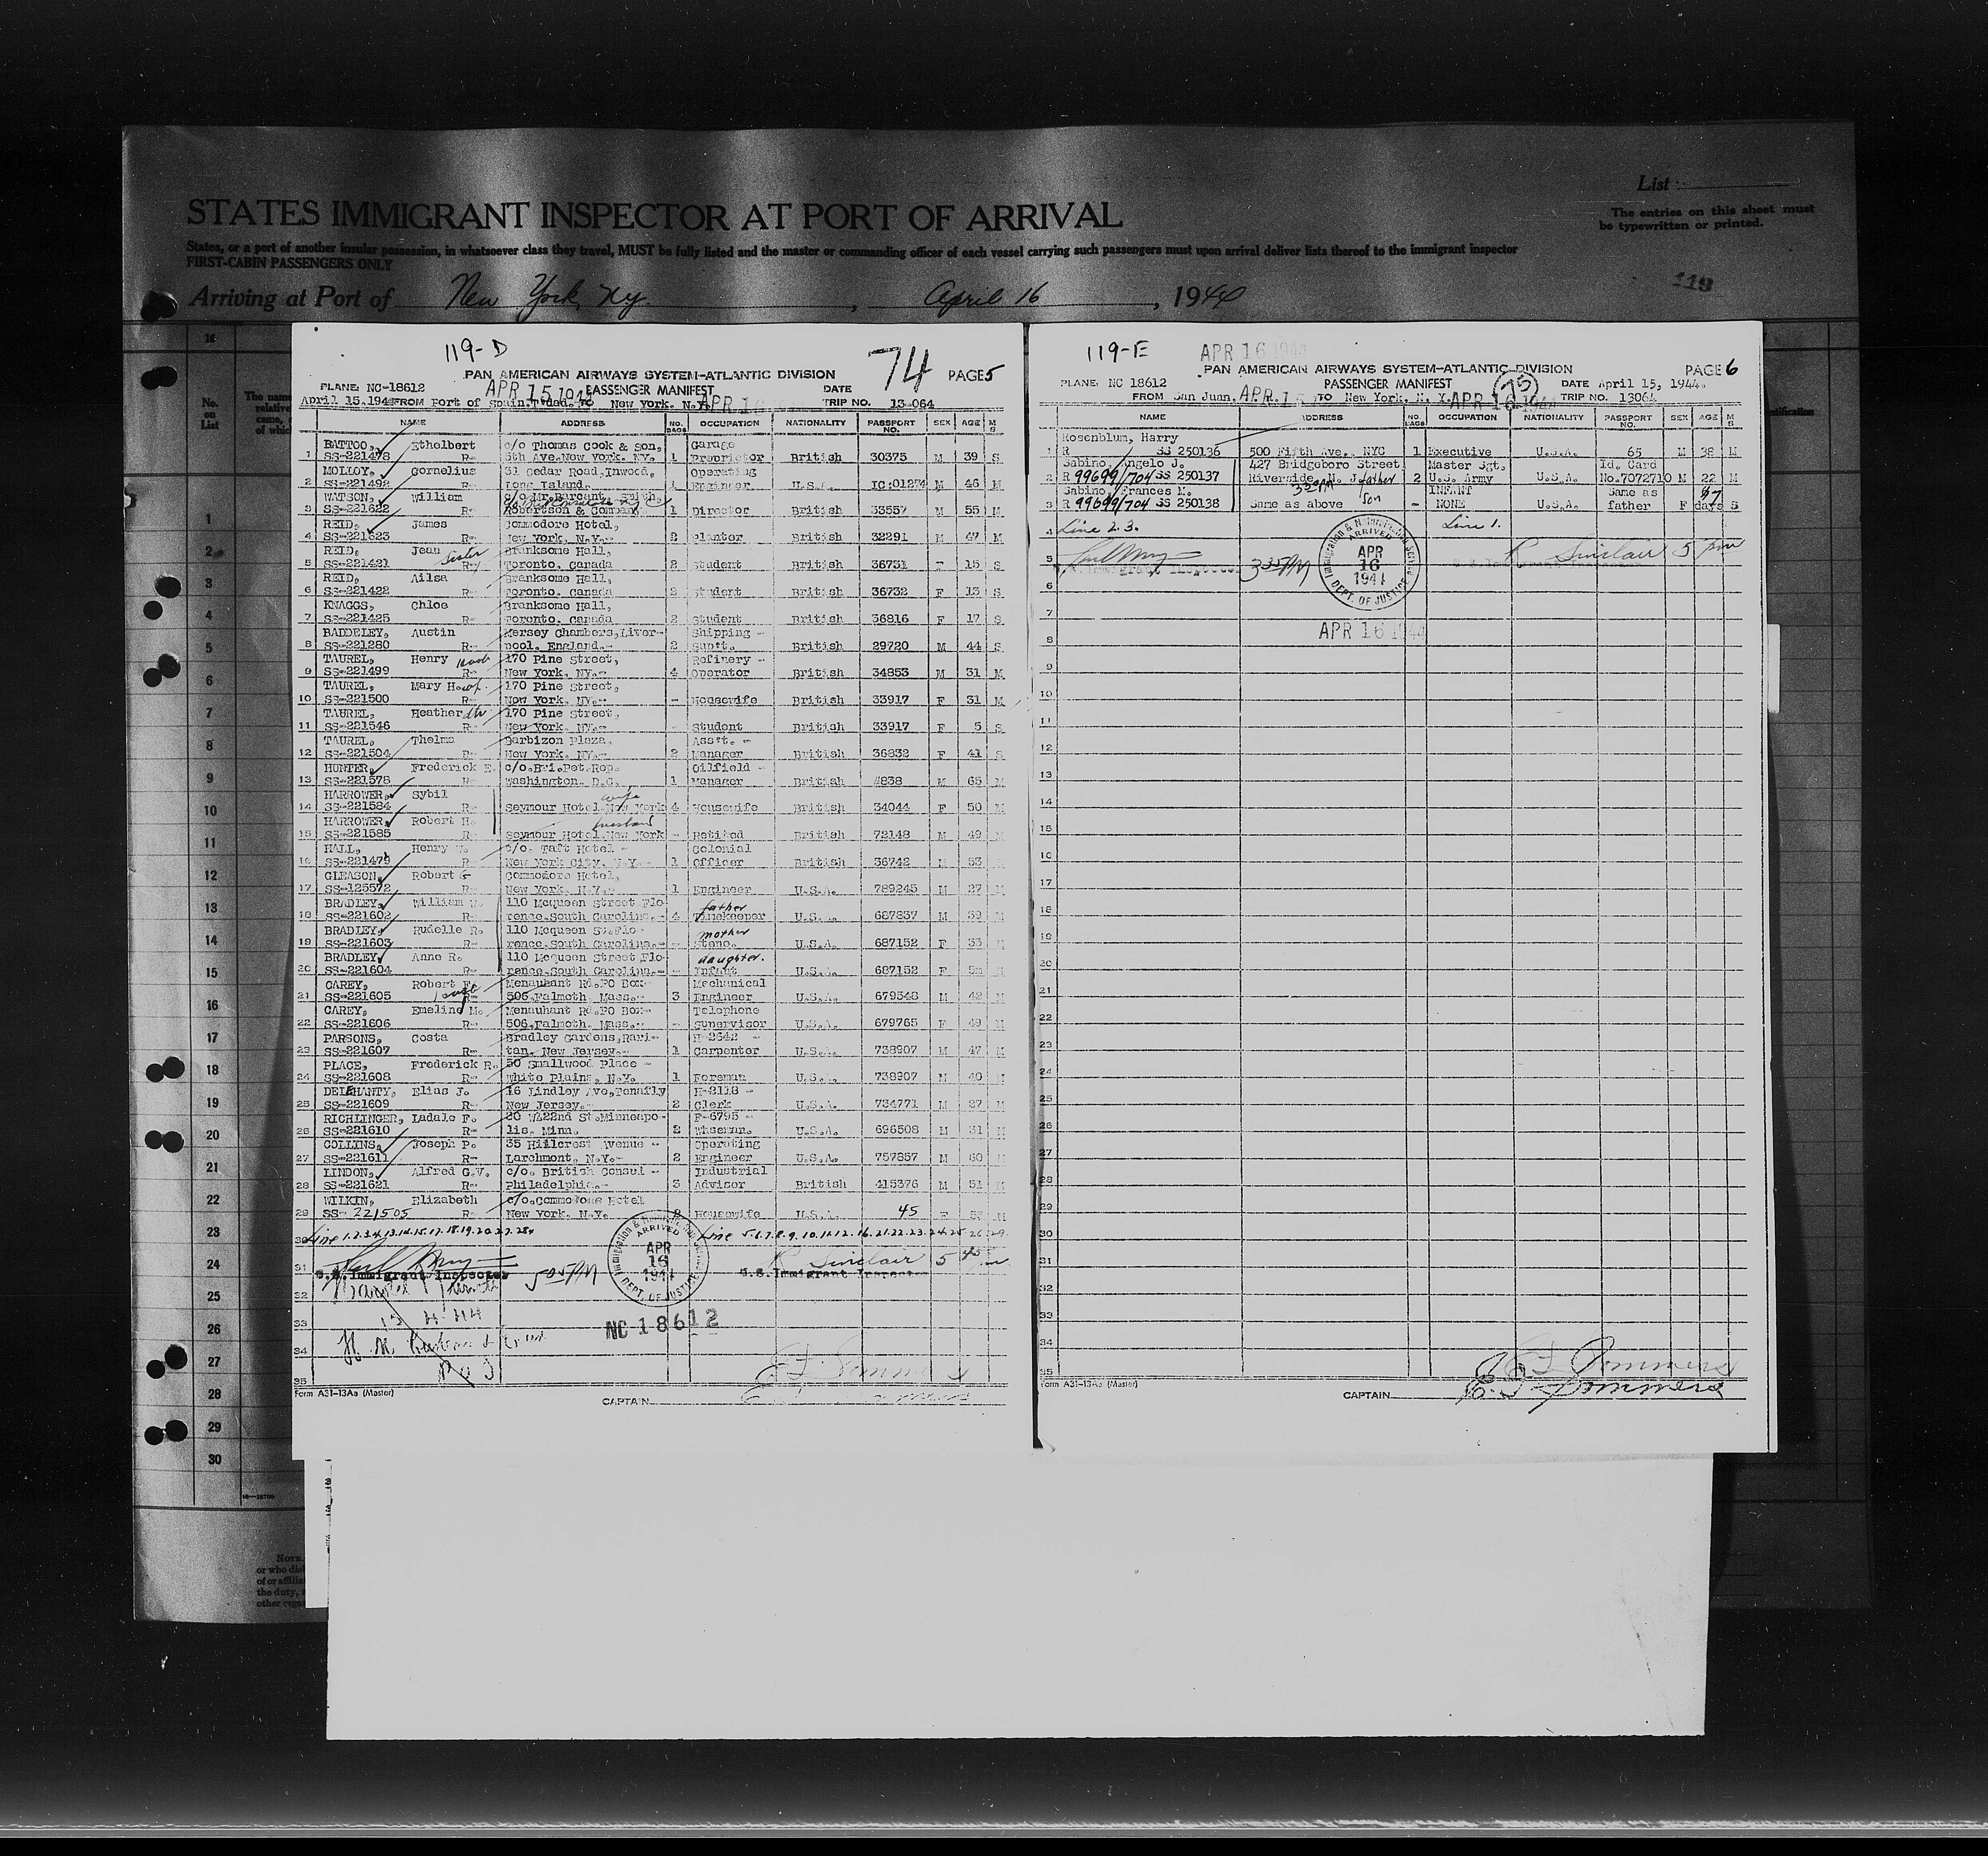 List
STATES IMMIGRANT INSPECTOR AT PORT OF ARRIVAL
The entries on this sheet must
be typewritten or printed.
States, or a port of another insular possession, in whatsoever class they travel, MUST be fully listed and the master or commanding officer of each vessel carrying such passengers must upon arrival deliver lists thereof to the immigrant inspector
FIRST-CABIN PASSENGERS ONLY
Arriving at Port of New York, N.Y. , April 16 , 1944
119
119-D
74
PAN AMERICAN AIRWAYS SYSTEM-ATLANTIC DIVISION PAGE 5
PLANE: NC-18612 APR 15 1944 PASSENGER MANIFEST DATE
April 15, 1944 FROM Port of Spain, T'dad. TO New York. N.Y. APR 16 TRIP NO. 13-064
NAME ADDRESS NO. BAGS OCCUPATION NATIONALITY PASSPORT NO. SEX AGE M S
BATTOO, Ethelbert c/o Thomas Cook & Son, Garage
1 SS-221478 R- 5th Ave.New York. NY. 1 Proprietor British 30375 M 39 S
MOLLOY, Cornelius 31 Cedar Road,Inwood, Operating
2 SS-221492 R- Long Island. 1 Engineer U.S.A. M 46 M
WATSON, William
3 SS-221622 R- Robertson & Company 1 Director British 33557 M 55 M
REID, James Commodore Hotel,
4 SS-221623 R- New York. N.Y.- 2 Planter British 32291 M 47 M
REID, Jean Sister Branksome Hall,
5 SS-221421 R- Toronto. Canada 2 Student British 36731 F 15 S
REID, Ailsa Branksome Hall,
6 SS-221422 R- Toronto. Canada 2 Student British 36732 F 13 S
KNAGGS, Chloe Branksome Hall,
7 SS-221425 R- Toronto. Canada 2 Student British 36816 F 17 S
BADDELEY, Austin Mersey Chambers,Liver- Shipping -
8 SS-221280 R- pool. England.- 2 Supt. British 29720 M 44 S
TAUREL, Henry 170 Pine Street, Refinery -
9 SS-221499 R- New York. NY.- 4 Operator British 34853 M 31 M
TAUREL, Mary H. 170 Pine Street,
10 SS-221500 R- New York. NY.- - Housewife British 33917 F 31 M
TAUREL, Heather 170 Pine Street,
11 SS-221546 R- New York. NY.- - Student British 33917 F 5 S
TAUREL, Thelma Barbizon Plaza, Ass't. -
12 SS-221504 R- New York. NY.- 2 Manager British 36832 F 41 S
HUNTER, Frederick E. c/o.Bri.Pet.Rep. Oilfield -
13 SS-221578 R- Washington. D.C. 1 Manager British 4838 M 65 M
HARROWER, Sybil wife
14 SS-221584 R- Seymour Hotel.New York 4 Housewife British 34044 F 50 M
HARROWER, Robert H. husband
15 SS-221585 R- Seymour Hotel.New York - Retired British 72148 M 49 M
HALL, Henry W. c/o. Taft Hotel - Colonial
16 SS-221479 R- New York City. N.Y.- 1 Officer British 36742 M 53
GLEASON, Robert G Commodore Hotel,
17 SS-125572 R- New York. N.Y.- 1 Engineer U.S.A. 789245 M 27 M
BRADLEY, William W. 110 McQueen Street Flo- father
18 SS-221602 R- rence.South Carolina.- 4 Timekeeper U.S.A. 687837 M 39 M
BRADLEY, Rudelle R. 110 Mcqueen St.Flo- mother
19 SS-221603 R- rence.South Carolina.- - Steno. U.S.A. 687152 F 33 M
BRADLEY, Anne R. 110 Mcqueen Street Flo- daughter.
20 SS-221604 R- rence.South Carolina.- - Infant U.S.A. 687152 F 5m
CAREY, Robert F. Menauhant Rd.PO Box- Mechanical
21 SS-221605 R- 506.Falmoth Mass.- 3 Engineer U.S.A. 679548 M 42 M
CAREY, Emeline M. Menauhant Rd.PO Box- Telephone
22 SS-221606 R- 506.Falmoth. Mass.- - Supervisor U.S.A. 679765 F 49 M
PARSONS, Costa Bradley Gardens,Rari- H-2642 -
23 SS-221607 R- tan. New Jersey.- 1 Carpenter U.S.A. 738907 M 47 M
PLACE, Frederick R. 50 Smallwood Place -
24 SS-221608 R- White Plains. N.Y. 1 Foreman U.S.A. 738907 M 40 M
DELEHANTY, Elias J. 16 Lindley Ave,Tenafly H-2118 -
25 SS-221609 R- New Jersey.- 2 Clerk U.S.A. 734771 M 37 M
RICHLINGER, Ladale F. 20 W.22nd St.Minneapo- F-6795 -
26 SS-221610 R- lis. Minn. 2 U.S.A. 696508 M 31 M
COLLINS, Joseph P. 35 Hillcrest Avenue - Operating
27 SS-221611 R- Larchmont. N.Y.- 2 Engineer U.S.A. 757857 M 60 M
LINDON, Alfred G.V. c/o. British Consul - Industrial
28 SS-221621 R- Philadelphia.- 3 Advisor British 415376 M 51 M
WILKIN, Elizabeth c/o.Commodore Hotel
29 SS-221505 R- New York. N.Y. 2 Housewife U.S.A. 45 F 53 M
30 Line 1.2.3.4.13.14.15.17.18.19.20.27.28. Line 5.6.7.8.9.10.11.12.16.21.22.23.24.25.26.29.
31 R Sinclair 5 45 pm
U.S. Immigrant Inspector 5 05 PM U.S. Immigrant Inspector
Immigration & Naturalization Service
ARRIVED
APR
16
1944
DEPT. OF JUSTICE
32
33
NC 18612
34
35 E.F. Sommers
Form A31-13Aa (Master)
CAPTAIN
119-E APR 16 1944
PAN AMERICAN AIRWAYS SYSTEM-ATLANTIC DIVISION PAGE 6
PLANE: NC 18612 PASSENGER MANIFEST 75 DATE April 15, 1944.
FROM San Juan, APR. 15 TO New York, N. Y. APR 16 1944 TRIP NO. 13064
NAME ADDRESS NO. BAGS OCCUPATION NATIONALITY PASSPORT NO. SEX AGE M S
Rosenblum, Harry
1 R SS 250136 500 Fifth Ave., NYC 1 Executive U.S.A. 65 M 38 M
Sabino, Angelo J. 427 Bridgeboro Street Master Sgt. Id. Card
2 R 99699/704 SS 250137 Riverside, N. J. father 2 U.S. Army U.S.A. No.7072710 M 22 M
Sabino, Frances M. son INFANT Same as
3 R 99699/704 SS 250138 Same as above - NONE U.S.A. father F days S
4 Line 2.3. Line 1.
5 3 35 PM R Sinclair 5 pm
Immigration & Naturalization Service
ARRIVED
APR
16
1944
DEPT. OF JUSTICE
6
7
APR 16 1944
8
9
10
11
12
13
14
15
16
17
18
19
20
21
22
23
24
25
26
27
28
29
30
31
32
33
34
35 E.F. Sommers
Form A31-13Aa (Master)
CAPTAIN E.F. Sommers
No.
on
List
1
2
3
4
5
6
7
8
9
10
11
12
13
14
15
16
17
18
19
20
21
22
23
24
25
26
27
28
29
30